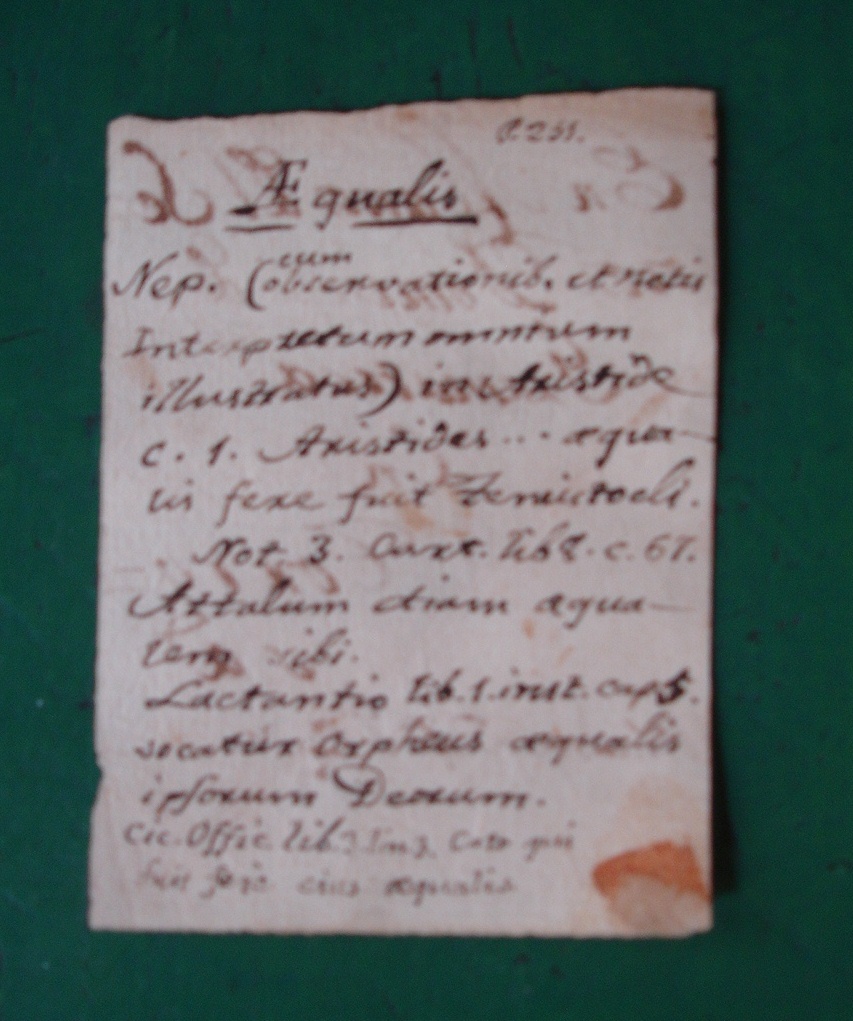 P. 251.
Æqualis
Nep. (cum observationib. et notis
Interpretum omnium
illustratus) in Aristide
c. 1. Aristides ... æqua-
lis fere fuit Temistocli.
Not. 3. Curt. lib 8. c.
Attalum etiam æqua-
lem sibi.
Lactantio lib. 1. inst. cap 5.
vocatur Orpheus æqualis
ipsorum Deorum.
Cic. Offic. lib. 3. Cato qui
fuit fere eius æqualis